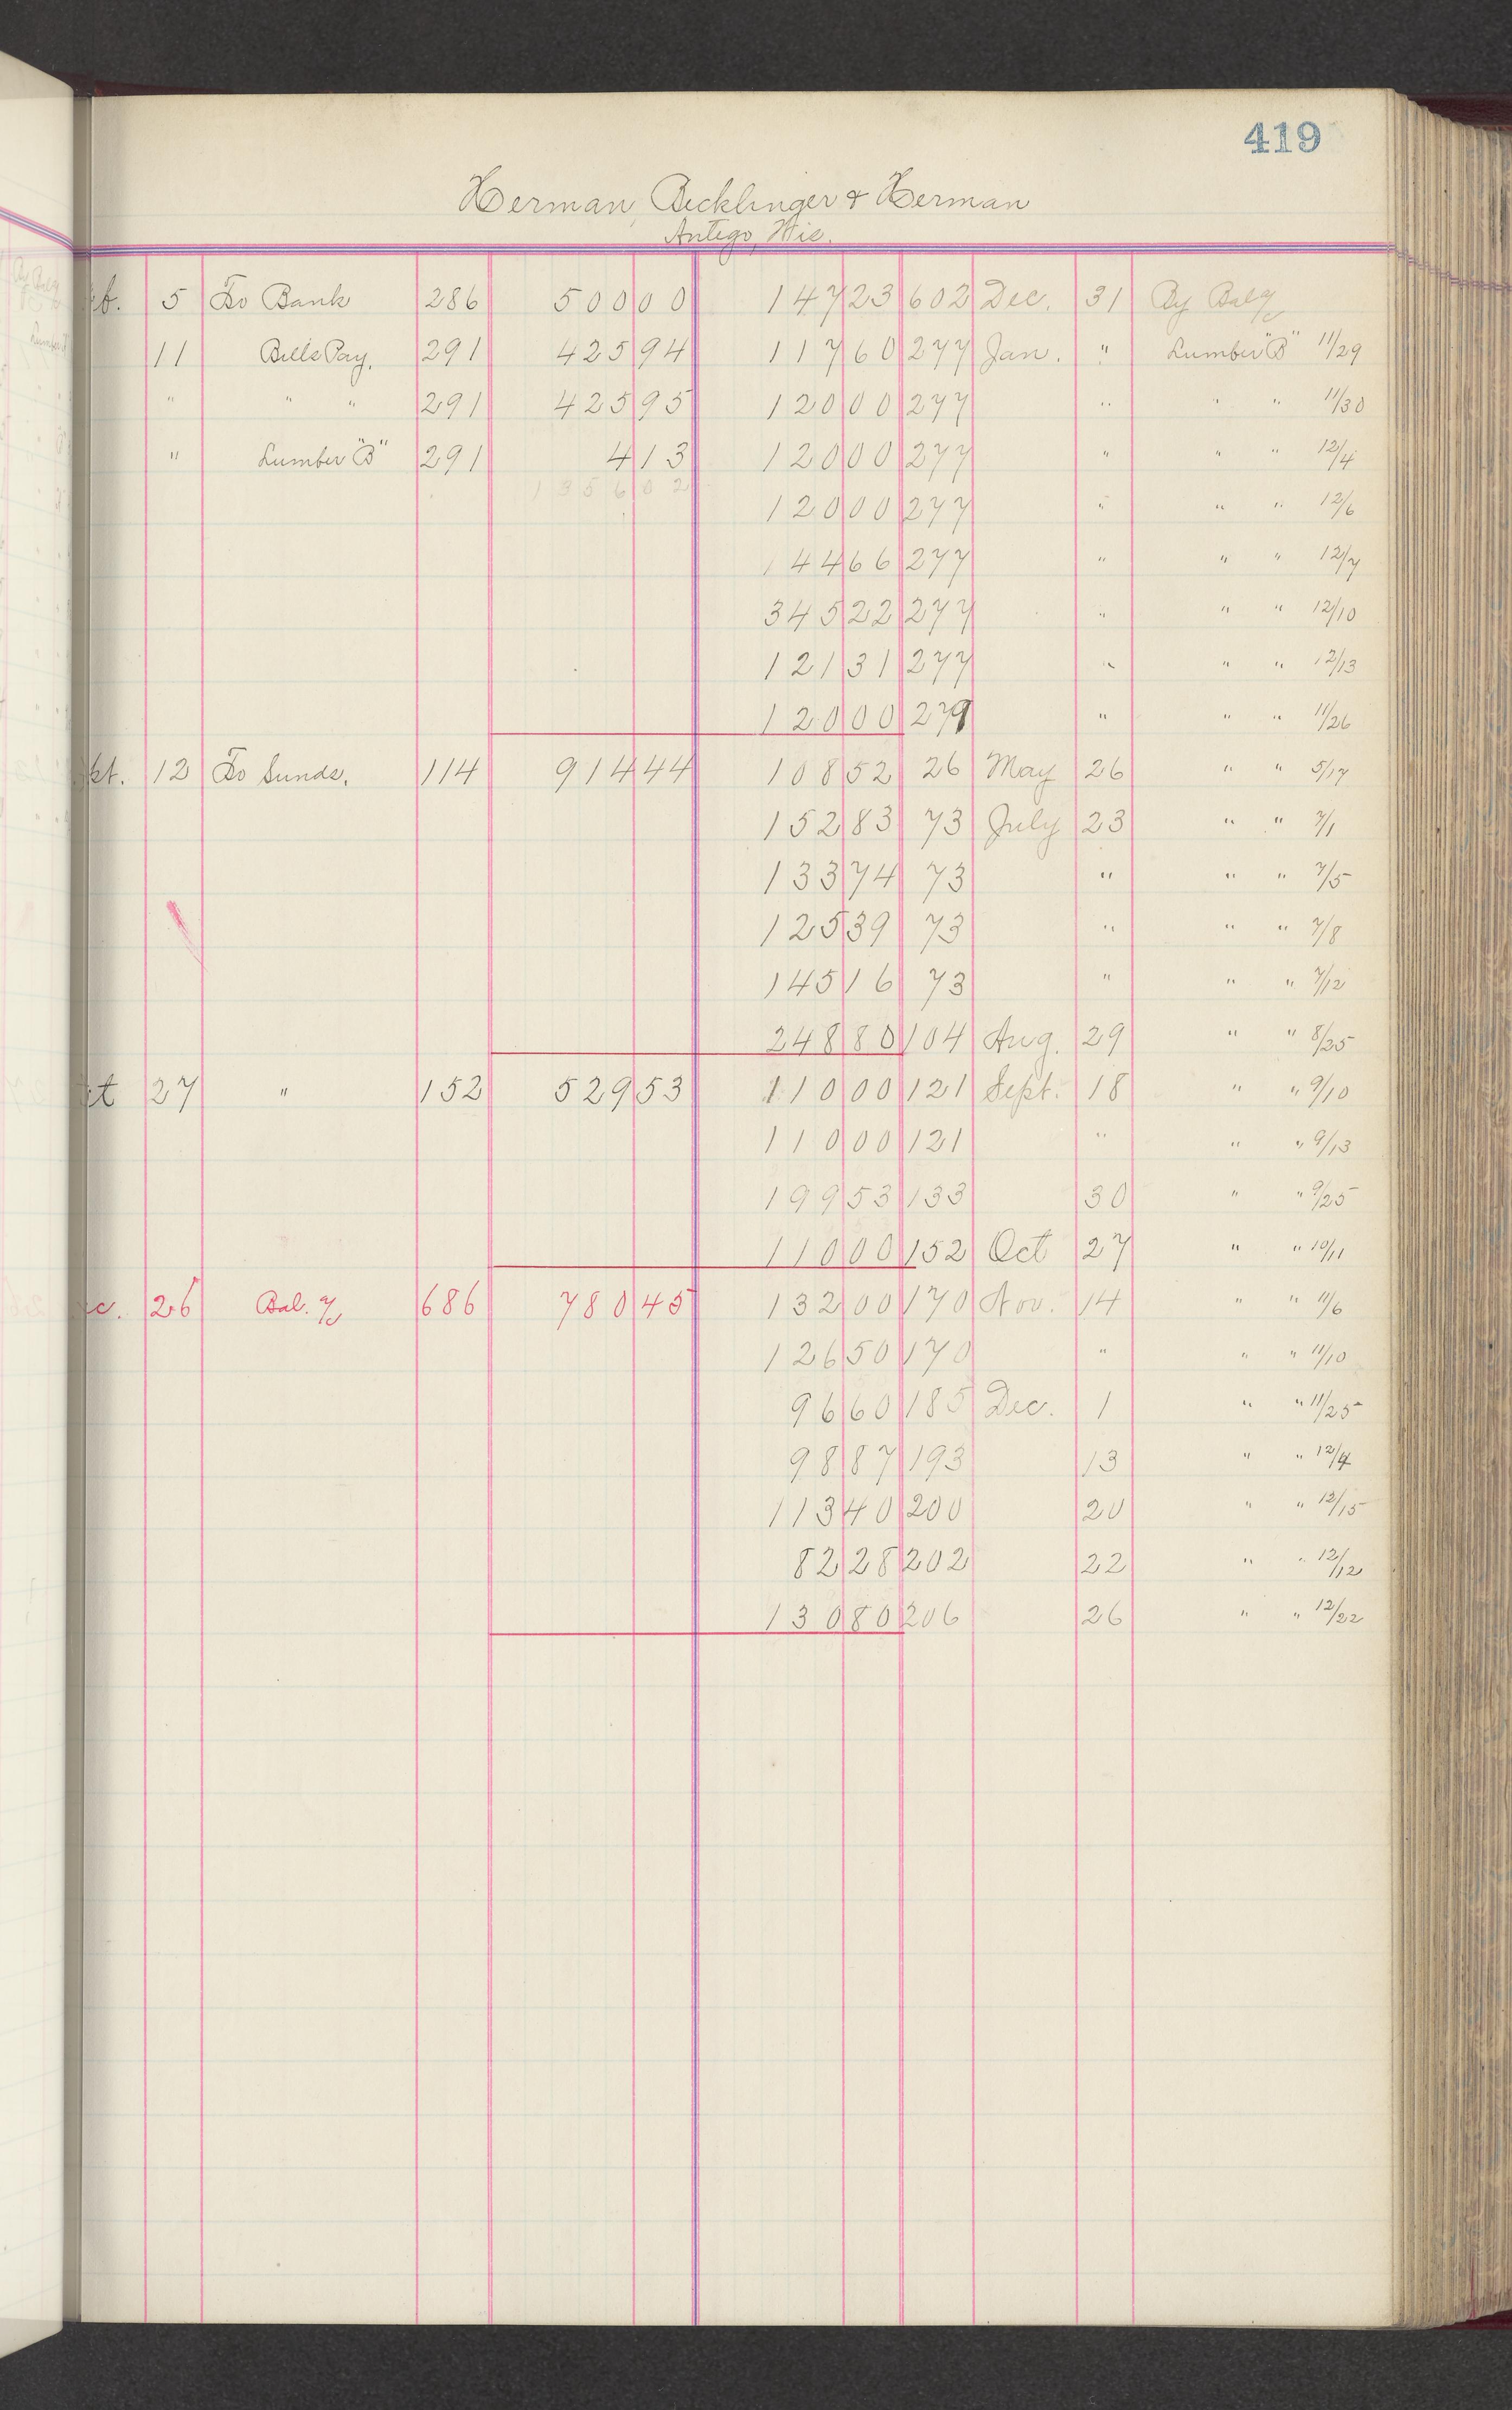 419
Herman, Becklinger & Herman
Antigo, Wis.
eb. 5 To Bank 286 500 00 147 23 602 Dec. 31 By Bal %
11 Bills Pay. 291 425 94 117 60 277 Jan. " Lumber "B" 11/29
" " " 291 425 95 120 00 277 " " " 11/30
" Lumber "B" 291 4 13 120 00 277 " " " 12/4
1356 02 120 00 277 " " " 12/6
144 66 277 " " " 12/7
345 22 277 " " " 12/10
121 31 277 " " " 12/13
120 00 279 " " " 11/26
pt. 12 To Sunds. 114 914 44 108 52 26 May 26 " " 5/17
152 83 73 July 23 " " 7/1
133 74 73 " " " 7/5
125 39 73 " " " 7/8
145 16 73 " " " 7/12
248 80 104 Aug. 29 " " 8/25
ct 27 " 152 529 53 110 00 121 Sept. 18 " " 9/10
110 00 121 " " " 9/13
199 53 133 30 " " 9/25
110 00 152 Oct 27 " " 10/11
c. 26 Bal. % 686 780 45 132 00 170 Nov. 14 " " 11/6
126 50 170 " " " 11/10
96 60 185 Dec. 1 " " 11/25
98 87 193 13 " " 12/4
113 40 200 20 " " 12/15
82 28 202 22 " " 12/12
130 80 206 26 " " 12/22